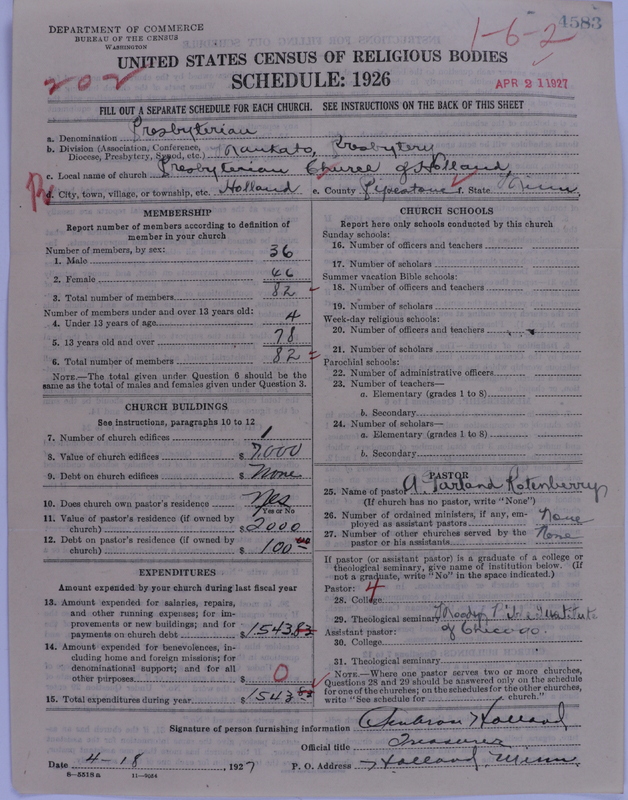 4583
1-6-2
DEPARTMENT OF COMMERCE
BUREAU OF THE CENSUS
WASHINGTON
202
UNITED STATES CENSUS OF RELIGIOUS BODIES
SCHEDULE: 1926
APR 21 1927
FILL OUT A SEPARATE SCHEDULE FOR EACH CHURCH. SEE INSTRUCTIONS ON THE BACK OF THIS SHEET
a. Denomination Presbyterian
b. Division (Association, Conference, Diocese, Presbytery, Synod, etc.) Mankato, Presbytery
c. Local name of church Presbyterian Church of Holland,
d. City, town, village, or township, etc. Holland e. County Pipestone f. State Minn,
MEMBERSHIP
Report number of members according to definition of
member in your church
Number of members, by sex:
1. Male 36
2. Female 46
3. Total number of members 82
Number of members under and over 13 years old:
4. Under 13 years of age 4
5. 13 years old and over 78
6. Total number of members 82
NOTE.—The total given under Question 6 should be
same as the total of males and females given under Question 3.
CHURCH BUILDINGS
See instructions, paragraphs 10 to 12
7. Number of church edifices 1
8. Value of church edifices $ 7,000
9. Debt on church edifices $ None
10. Does church own pastor's residence Yes
Yes or No
11. Value of pastor's residence (if owned by
church) $ 2000
12. Debt on pastor's residence (if owned by
church) $ 100 00
EXPENDITURES
Amount expended by your church during last fiscal year
13. Amount expended for salaries, repairs,
and other running expenses; for im-
provements or new buildings; and for
payments on church debt $ 1543.83
14. Amount expended for benevolences, in-
cluding home and foreign missions; for
denominational support; and for all
other purposes $ 0
15. Total expenditures during year $ 1543 83
CHURCH SCHOOLS
Report here only schools conducted by this church
Sunday schools:
16. Number of officers and teachers
17. Number of scholars
Summer vacation Bible schools:
18. Number of officers and teachers
19. Number of scholars
Week-day religious schools:
20. Number of officers and teachers
21. Number of scholars
Parochial schools:
22. Number of administrative officers
23. Number of teachers—
a. Elementary (grades 1 to 8)
b. Secondary
24. Number of scholars—
a. Elementary (grades 1 to 8)
b. Secondary
PASTOR
25. Name of pastor A. Garland Rotenberry
(If church has no pastor, write "None")
26. Number of ordained ministers, if any, em-
ployed as assistant pastors None
27. Number of other churches served by the
pastor or his assistants None
If pastor (or assistant pastor) is a graduate of a college or
theological seminary, give name of institution below. (If
not a graduate, write "No" in the space indicated.)
Pastor: 4
28. College
29. Theological seminary Moody Bible Institute
Assistant pastor: of Chicago.
30. College
31. Theological seminary
NOTE.—Where one pastor serves two or more churches,
Questions 28 and 29 should be answered only on the schedule
for one of the churches; on the schedules for the other churches,
write "See schedule for church."
Signature of person furnishing information Holland
Official title Treasurer
Date 4-18, 1927 P. O. Address Holland, Minn.